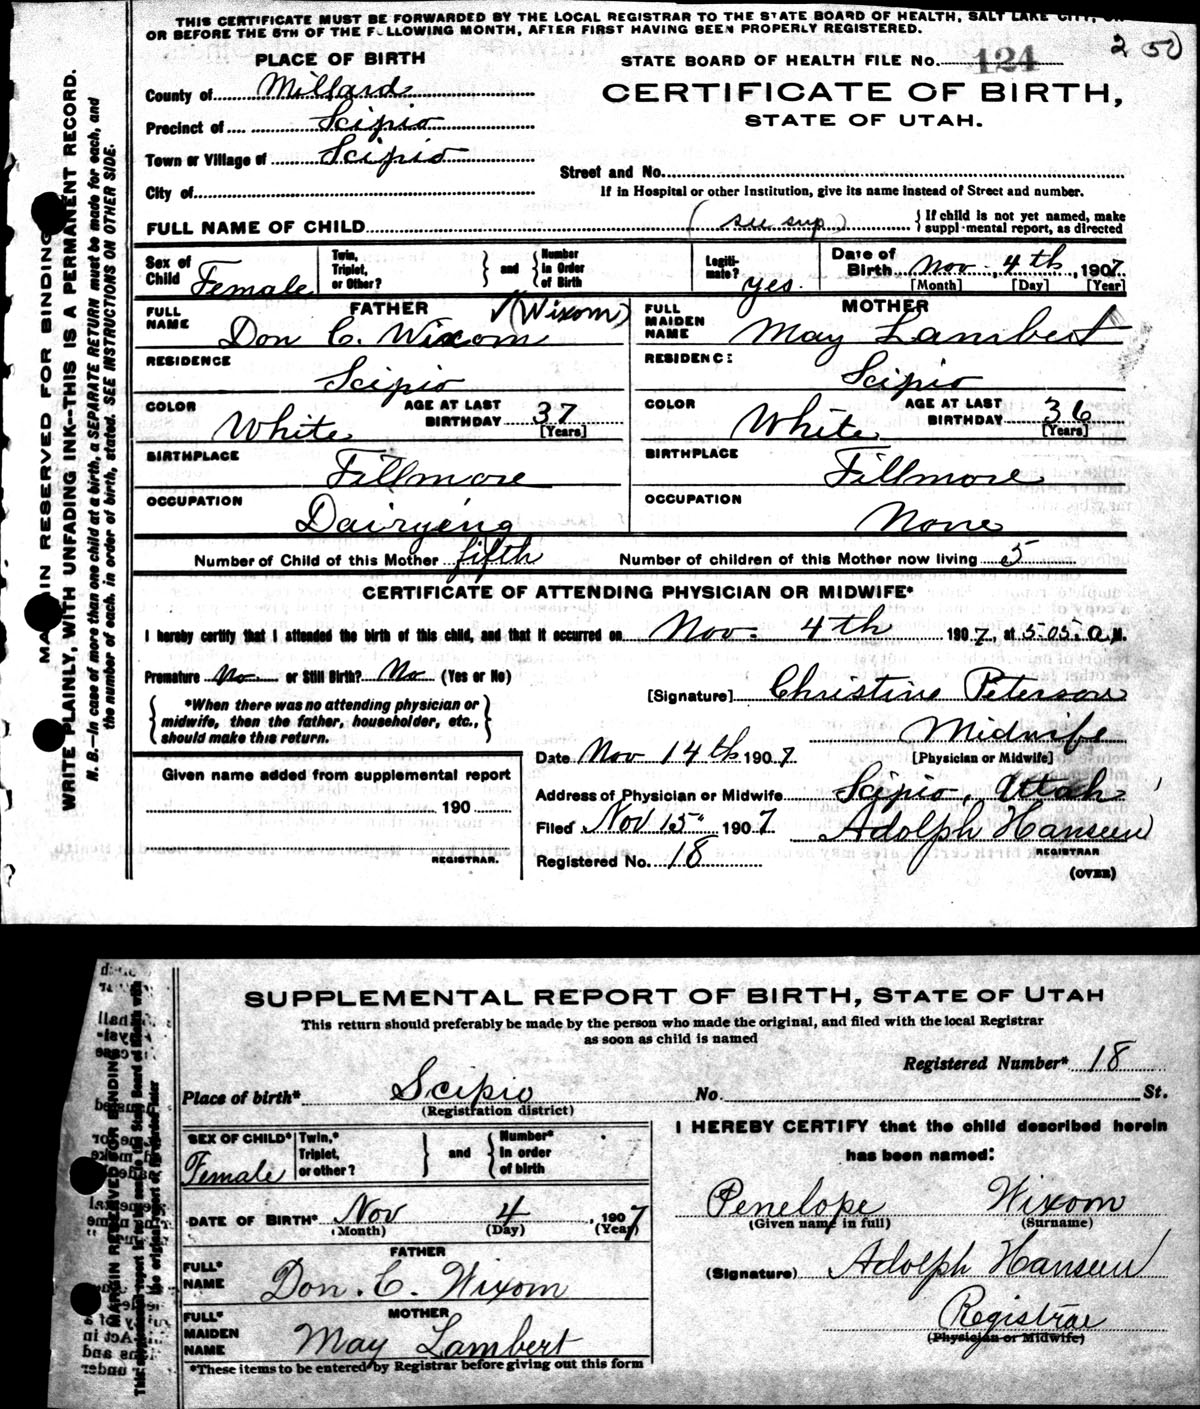 THIS CERTIFICATE MUST BE FORWARDED BY THE LOCAL REGISTRAR TO THE STATE BOARD OF HEALTH, SALT LAKE CITY, ON
OR BEFORE THE 5TH OF THE FOLLOWING MONTH, AFTER FIRST HAVING BEEN PROPERLY REGISTERED.
2 50
PLACE OF BIRTH
STATE BOARD OF HEALTH FILE NO. 124
County of Millard
CERTIFICATE OF BIRTH,
Precinct of Scipio
STATE OF UTAH.
Town or Village of Scipio
Street and No.
City of
If in Hospital or other Institution, give its name instead of Street and number.
FULL NAME OF CHILD (see sup) If child is not yet named, make
supplemental report, as directed
Sex of Child Female
Twin, Triplet, or Other? and Number in Order of Birth
Legitimate? yes.
Date of Birth Nov. 4th, 1907
[Month] [Day] [Year]
FATHER
FULL NAME Don C. Wixom ✓(Wixom)
MOTHER
FULL MAIDEN NAME May Lambert
RESIDENCE Scipio
RESIDENCE: Scipio
COLOR White AGE AT LAST BIRTHDAY 37 [Years]
COLOR White AGE AT LAST BIRTHDAY 36 [Years]
BIRTHPLACE Fillmore
BIRTHPLACE Fillmore
OCCUPATION Dairyeng
OCCUPATION None
Number of Child of this Mother fifth Number of children of this Mother now living 5
CERTIFICATE OF ATTENDING PHYSICIAN OR MIDWIFE*
I hereby certify that I attended the birth of this child, and that it occurred on Nov. 4th 1907, at 5.05. a.M.
Premature No or Still Birth? No (Yes or No)
[Signature] Christine Peterson
*When there was no attending physician or
midwife, then the father, householder, etc.,
should make this return.
Midwife
[Physician or Midwife]
Date Nov 14th 1907
Given name added from supplemental report
190
REGISTRAR.
Address of Physician or Midwife Scipio, Utah
Filed Nov 15" 1907 Adolph Hanseen
REGISTRAR
Registered No. 18
(OVER)
MARGIN RESERVED FOR BINDING
WRITE PLAINLY, WITH UNFADING INK--THIS IS A PERMANENT RECORD.
N. B.--In case of more than one child at a birth, a SEPARATE RETURN must be made for each, and
the number of each, in order of birth, stated. SEE INSTRUCTIONS ON OTHER SIDE.
SUPPLEMENTAL REPORT OF BIRTH, STATE OF UTAH
This return should preferably be made by the person who made the original, and filed with the local Registrar
as soon as child is named
Registered Number* 18
Place of birth* Scipio No. St.
(Registration district)
SEX OF CHILD* Female
Twin,* Triplet, or other? and Number* in order of birth
I HEREBY CERTIFY that the child described herein
has been named:
DATE OF BIRTH* Nov 4, 1907
(Month) (Day) (Year)
Penelope Wixom
(Given name in full) (Surname)
FATHER
FULL* NAME Don. C. Wixom
(Signature) Adolph Hanseen
MOTHER
FULL* MAIDEN NAME May Lambert
Registrar
(Physician or Midwife)
*These items to be entered by Registrar before giving out this form
MARGIN RESERVED FOR BINDING